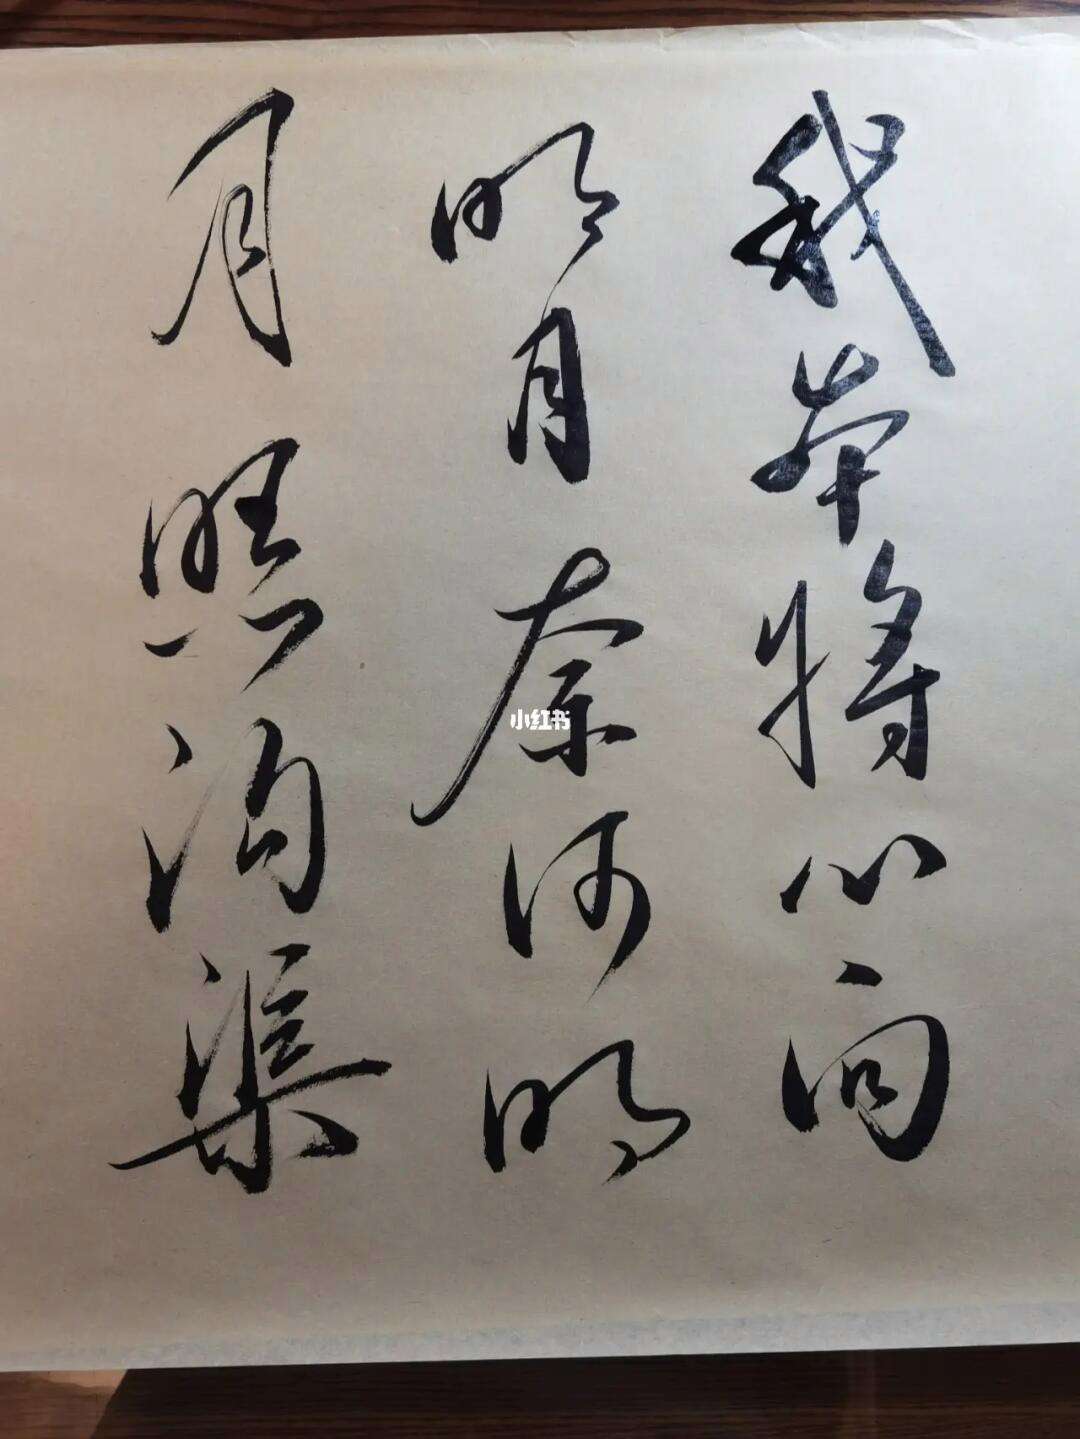 我本将心向
明月奈何明
月照沟渠
小红书